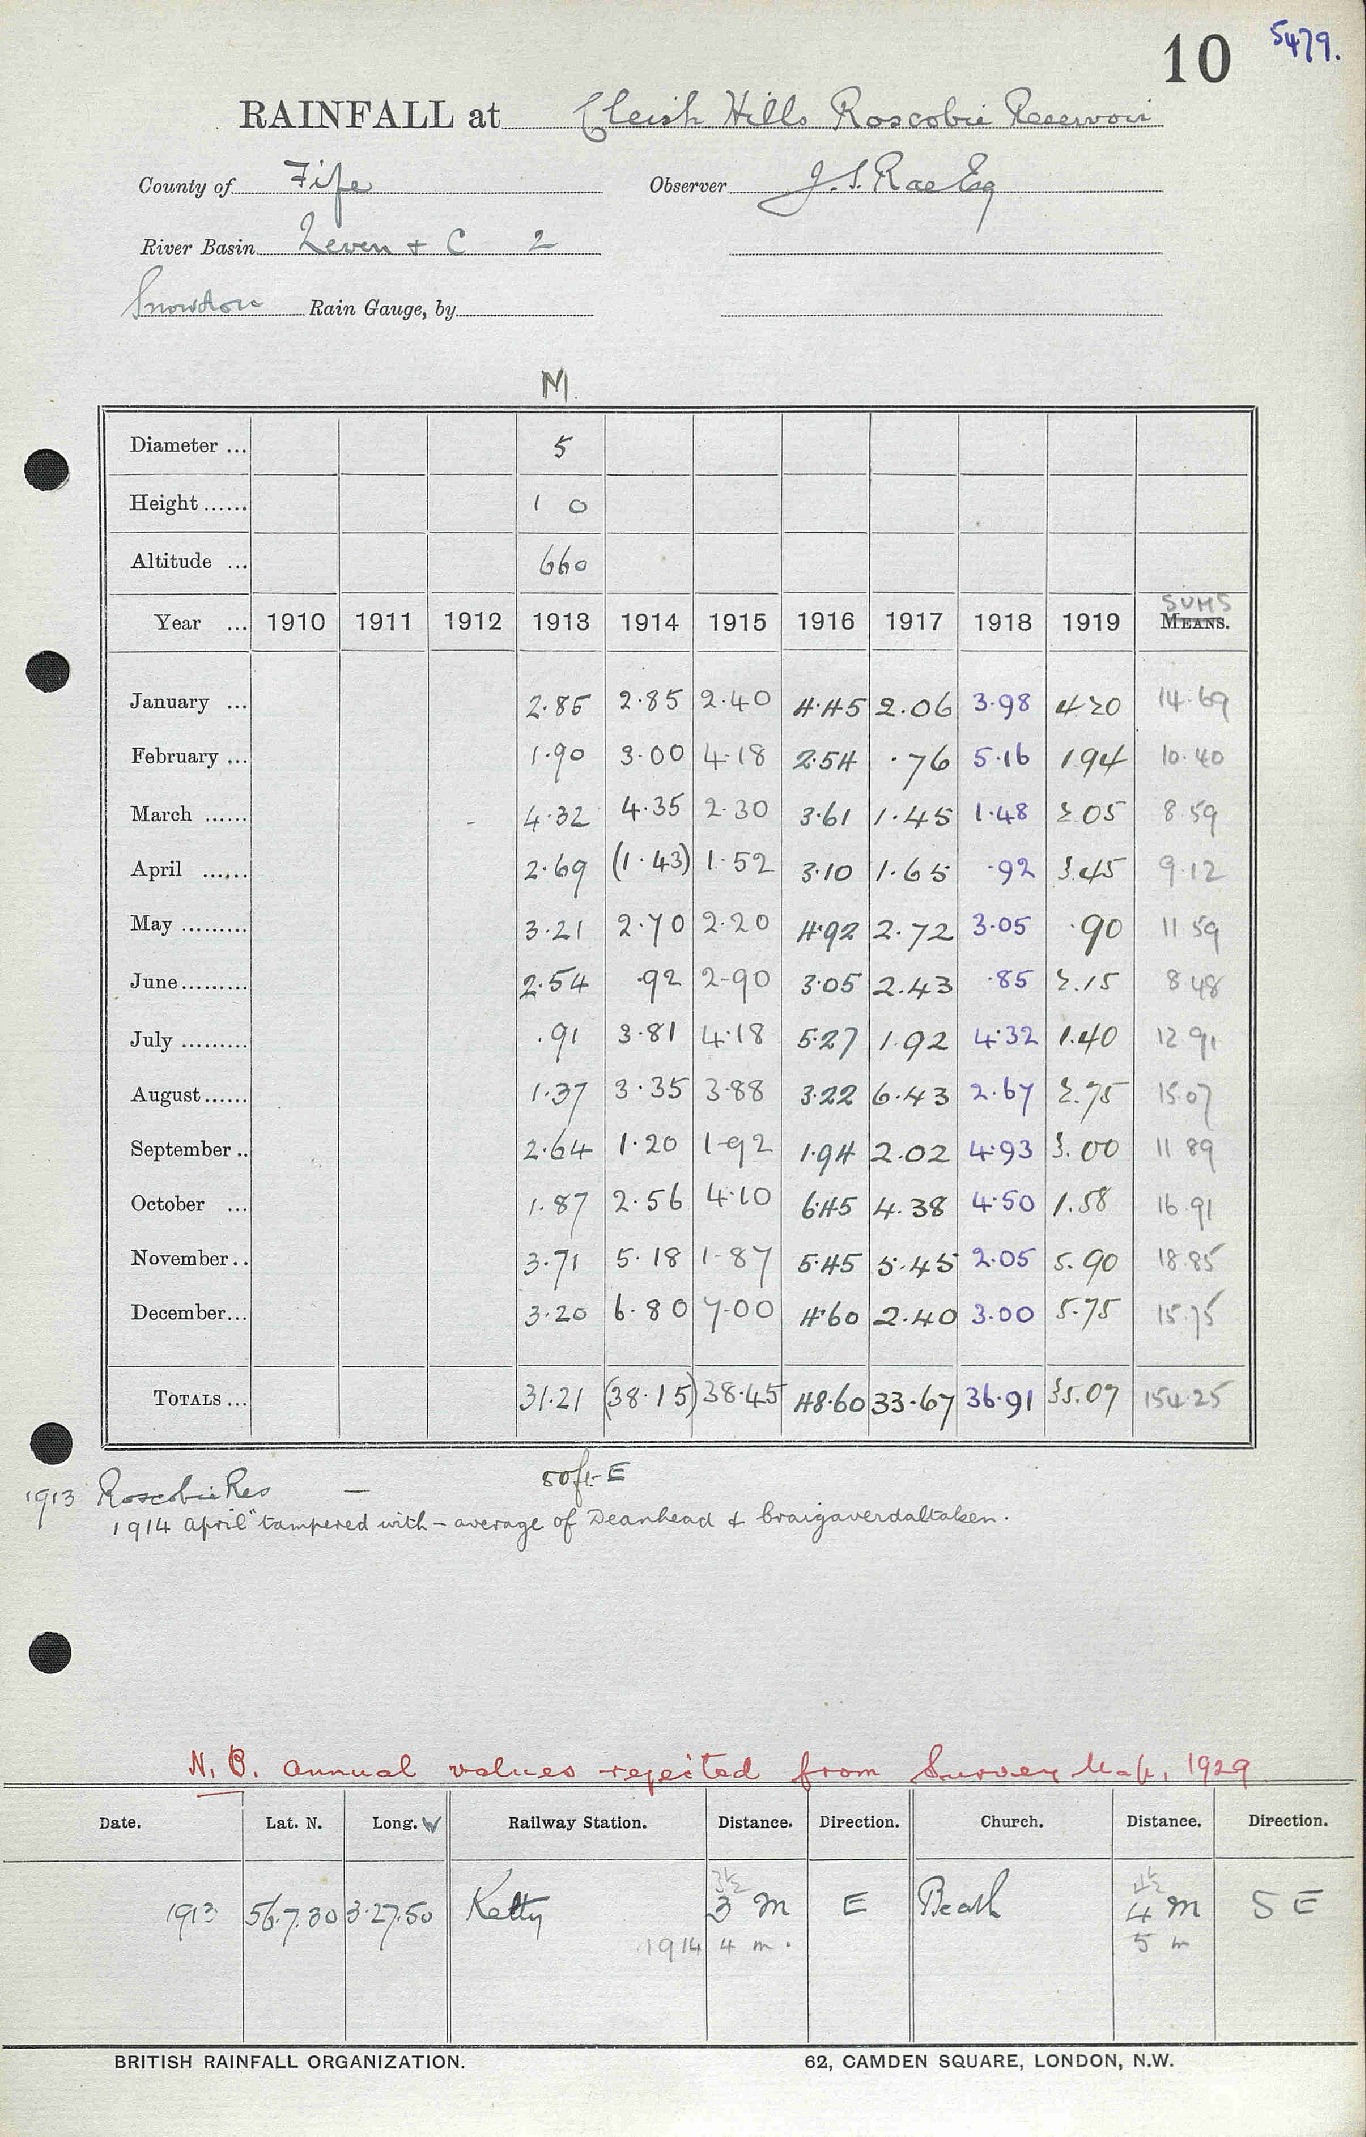 10 5479.
RAINFALL at Cleish Hills Roscobie Reservoir
County of Fife Observer J. S. Rae Esq
River Basin Leven + C 2
Snowdon Rain Gauge, by
M
Diameter ... 5
Height ...... 1 0
Altitude ... 660
SUMS
Year ... 1910 1911 1912 1913 1914 1915 1916 1917 1918 1919 MEANS.
January ... 2.85 2.85 2.40 4.45 2.06 3.98 4.20 14.69
February ... 1.90 3.00 4.18 2.54 .76 5.16 1.94 10.40
March ...... 4.32 4.35 2.30 3.61 1.45 1.48 2.05 8.59
April ...... 2.69 (1.43) 1.52 3.10 1.65 .92 3.45 9.12
May ......... 3.21 2.70 2.20 4.92 2.72 3.05 .90 11.59
June......... 2.54 .92 2.90 3.05 2.43 .85 2.15 8.48
July ......... .91 3.81 4.18 5.27 1.92 4.32 1.40 12.91
August...... 1.37 3.35 3.88 3.22 6.43 2.67 2.75 15.07
September .. 2.64 1.20 1.92 1.94 2.02 4.93 3.00 11.89
October ... 1.87 2.56 4.10 6.45 4.38 4.50 1.58 16.91
November .. 3.71 5.18 1.87 5.45 5.45 2.05 5.90 18.85
December... 3.20 6.80 7.00 4.60 2.40 3.00 5.75 15.75
TOTALS ... 31.21 (38.15) 38.45 48.60 33.67 36.91 35.07 154.25
1913 Roscobie Res — 50ft E
1914 April "tampered with – average of Deanhead & Craigaverdal taken.
N.B. Annual values rejected from Survey Map, 1929
Date. Lat. N. Long. W Railway Station. Distance. Direction. Church. Distance. Direction.
3½ 4½
1913 56.7.30 3.27.50 Kelty 3 m E Beath 4 m S E
1914 4 m. 5 m
BRITISH RAINFALL ORGANIZATION. 62, CAMDEN SQUARE, LONDON, N.W.